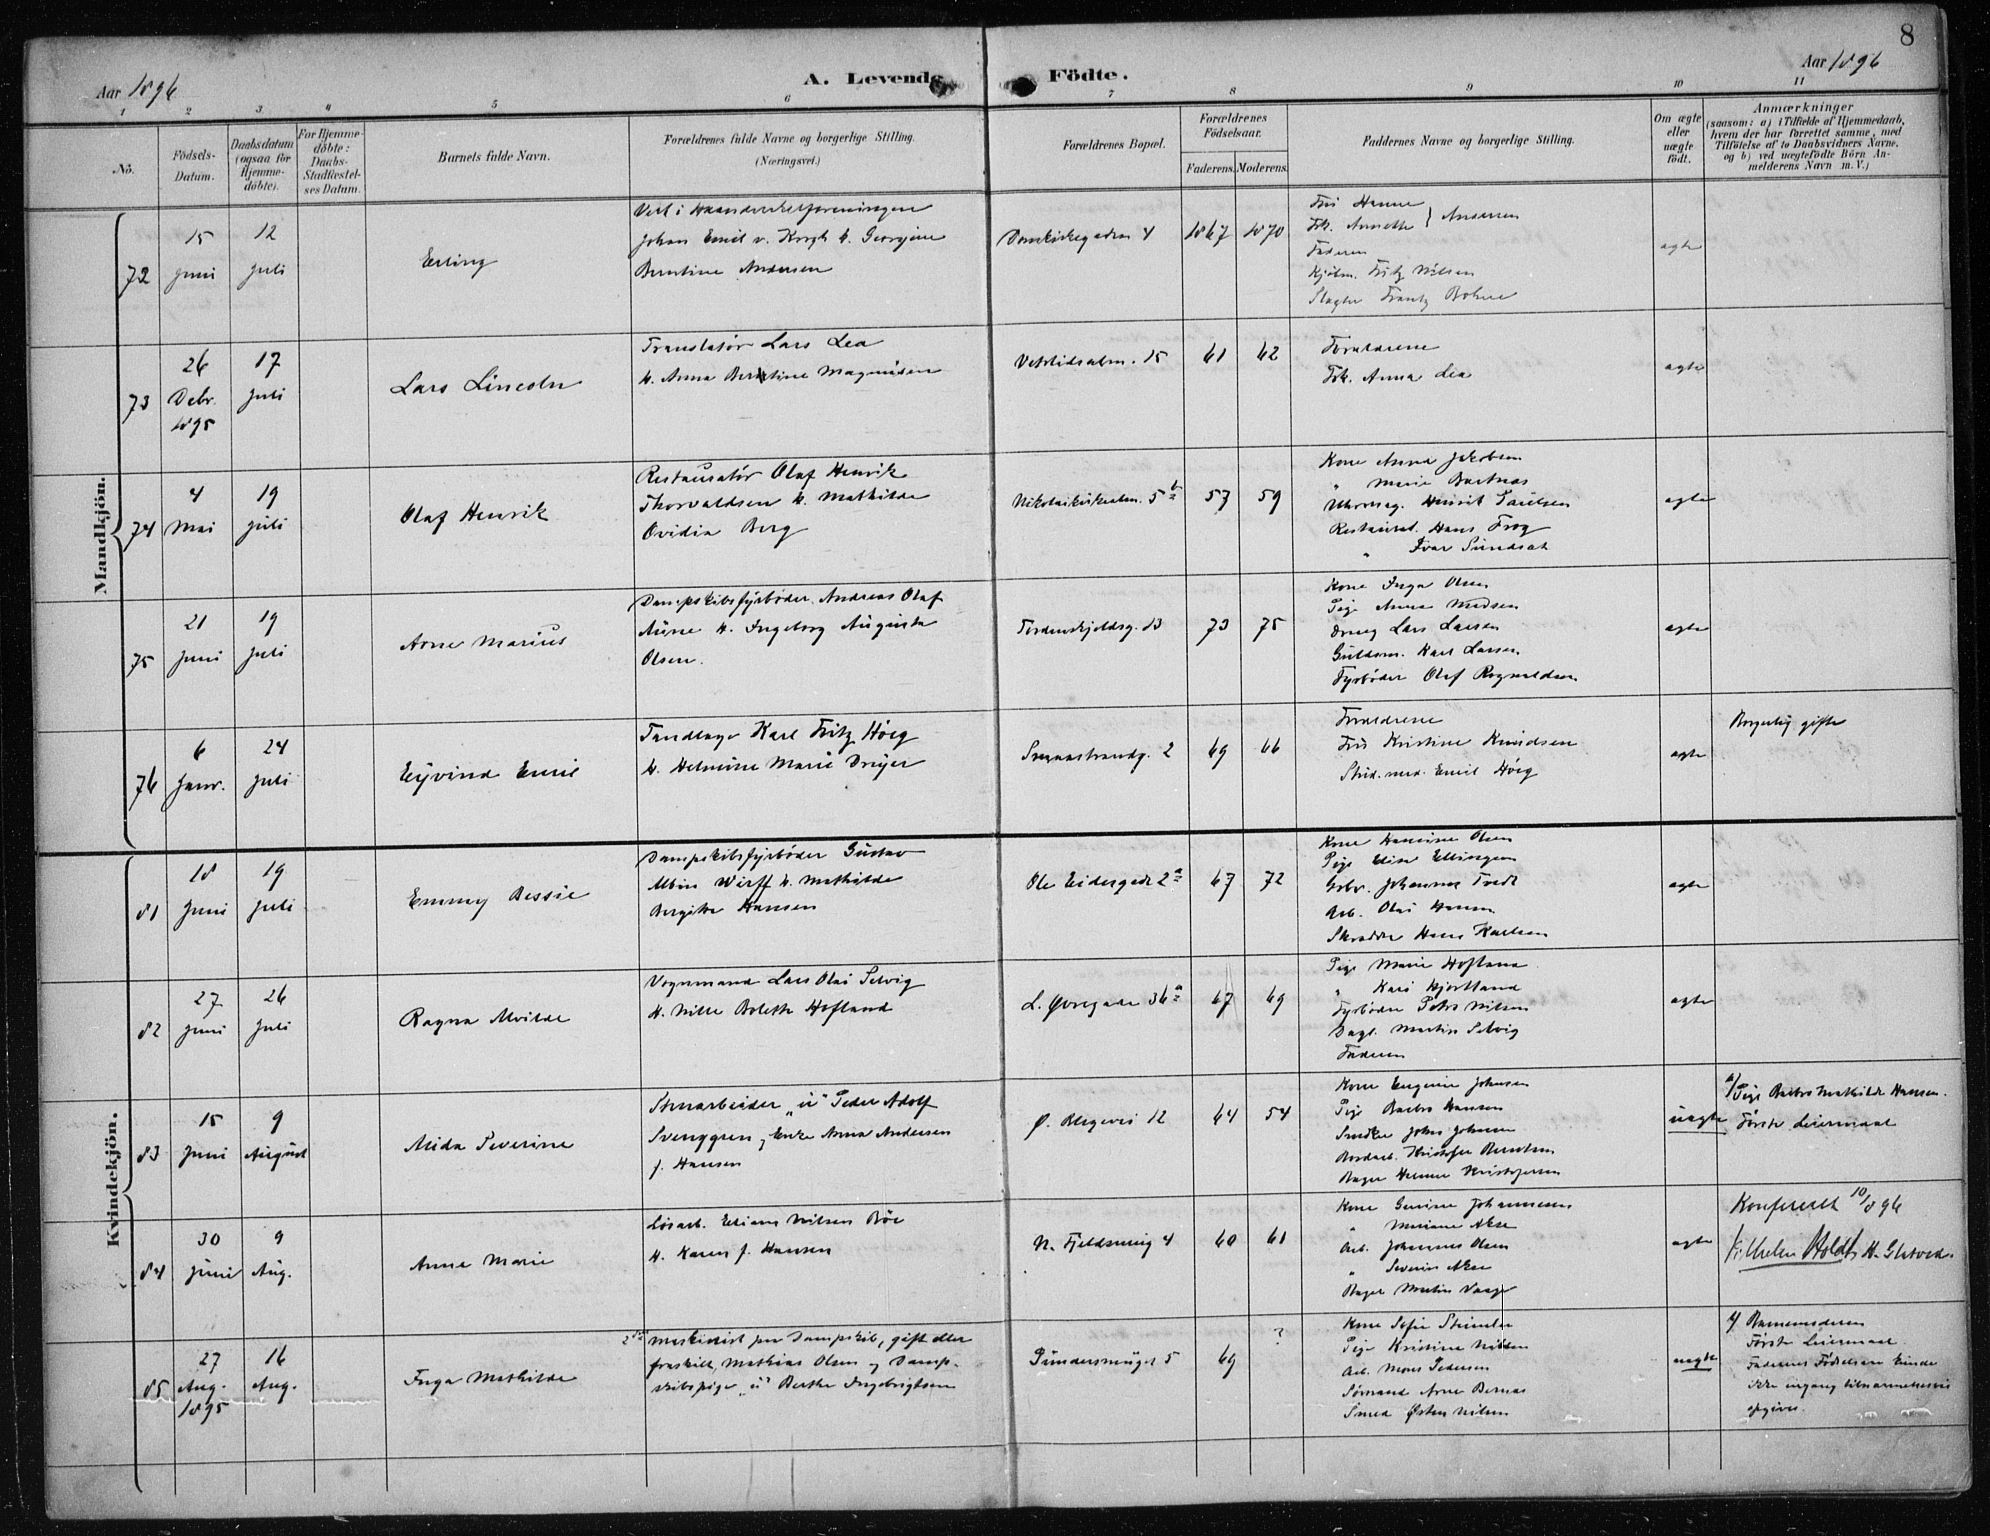 8
Aar 1896
A. Levende Födte.
Aar 1896
1 2 3 4 5 6 7 8 9 10 11
No.
Födsels-
Datum.
Daabsdatum
(ogsaa for
Hjemme-
döbte).
For Hjemme-
döbte:
Daabs-
Stadfæstel-
ses Datum.
Barnets fulde Navn.
Forældrenes fulde Navne og borgerlige Stilling.
(Næringsvei.)
Forældrenes Bopæl.
Forældrenes
Födselsaar.
Faderens. Moderens.
Faddernes Navne og borgerlige Stilling.
Om ægte
eller
uægte
födt.
Anmærkninger
(saasom: a) i Tilfælde af Hjemmedaab,
hvem der har forrettet samme, med
Tilföielse af to Daabsvidners Navne,
og b) ved uægtefödte Börn An-
melderens Navn m. V.)
Mandkjön.
72
15
Juni
12
Juli
Erling
Vert i Haandverkerforeningen
Johan Emil v. Krogh h. Georgine
Berntine Andersen
Domkirkegaden 4
1867
1870
Fru Hanne
Frk. Annette } Andersen
Faderen
Kjøbm. Fritz Nilsen
Slagter Frantz Bohne
ægte
73
26
Debr.
1895
17
Juli
Lars Lincoln
Translatør Lars Lea
h. Anna Berntine Magnüsen
Vetrlidsalm. 15
61
62
Forældrene
Frk. Anna Lea
ægte
74
4
Mai
19
Juli
Olaf Henrik
Restauratør Olaf Henrik
Thorvaldsen h. Mathilde
Ovidia Berg
Nikolaikirkealm. 5 b
57
59
Kone Anna Jakobsen
" Marie
Henrik Paulsen
Restaurat. Hans
" Ivar
ægte
75
21
Juni
19
Juli
Arne Marius
Dampskibsfyrbøder Andreas Olaf
Aüne h. Ingeborg Augusta
Olsen.
Tordenskjoldsg. 13
73
75
Kone Inga Olsen
Pige Anna Madsen
Lars Larsen
Guldsm. Karl Larsen
Fyrbøder Olaf Rognaldsen
ægte
76
6
Janr.
24
Juli
Eyvind Emil
Tandlæge Karl Fritz Höeg
h. Helmine Marie Dreyer
2
69
66
Forældrene
Frü Kristine Knüdsen
Stud. med. Emil Höeg
ægte
Borgerlig gifte
Kvindekjön.
81
18
Juni
19
Juli
Emmy Bessie
Dampskibsfyrbøder Güstav
Albin Wirff h. Mathilde
Bergitte Hansen
Ole Eidesgade 2 a
67
72
Kone Hansine Olsen
Pige Elise Ellingsen
Johannes Tvedt
Arb. Olai Hansen
Skrædder Hans Karlsen
ægte
82
27
Juni
26
Juli
Ragna Alvilde
Vognmand Lars Olai Selvig
h. Nille Bolette Hofland
L. Øvregade 36 a
67
69
Pige Marie Hofland
" Kari Hjortland
Fyrbøder Peter Nilsen
Dagl. Martin Selvig
Faderen
ægte
83
15
Juni
9
August
Alida Severine
Stenarbeider „ü" Peder Adolf
Svenggren og Enke Anna Andersen
f. Hansen
Ø. Blegevei 12
64
54
Kone Eugenie Johnsen
Pige Barbro Hansen
Smed John Johnsen
Kristofer Berntsen
Bager Helmer Kristofersen
uægte
a) Pige Barbro Mathilde Hansen.
Første Leiermaal
84
30
Juni
9
Aug.
Anna Marie
Løsarb. Elias Nilsen Böe
h. Karen f. Hansen
N. Fjeldsmug 4
60
61
Kone Gurine Johannesen
" Mariane Akse
Arb. Johannes Olsen
" Severin Akse
Bager Martin Vaage
ægte
Konfereret 10/8 96
Vilhelm Holdt
85
27
Aug.
1895
16
Aug.
Inga Mathilde
2den Maskinist paa Dampskib, gift eller
fraskilt, Mathias Olsen og Damp-
skibspige „ü" Berthe Ingebrigtsen
5
69
?
Kone Sofie
Pige Kristine Nilsen
Arb. Mons Pedersen
Sømand Arne Bernas
Smed Østen Nilsen
uægte
a) Barnemoderen
Første Leiermaal
Faderens Födselsaar kunde
ikke engang tilnærmelsesvis
opgives.